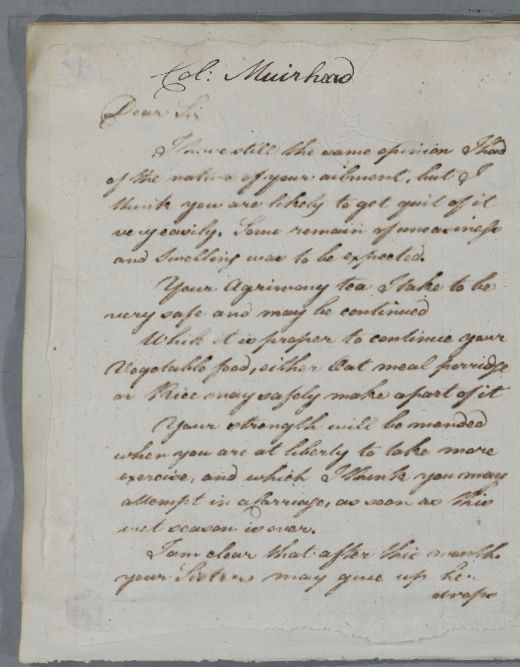 Col: Muirhead
Dear Sir
I have still the same opinion I had
of the nature of your ailment, but I
think you are likely to get quit of it
very easily. Some remain of uneasiness
and swelling was to be expected.
Your Agrimony tea I take to be
very safe and may be continued
While it is proper to continue your
Vegetable food, either Oat meal porridge
or Rice may safely make a part of it
Your strength will be mended
when you are at liberty to take more
exercise, and which I think you may
attempt in a Carriage, as soon as this
wet season is over.
I am clear that after this month
your Sister may give up her
drops